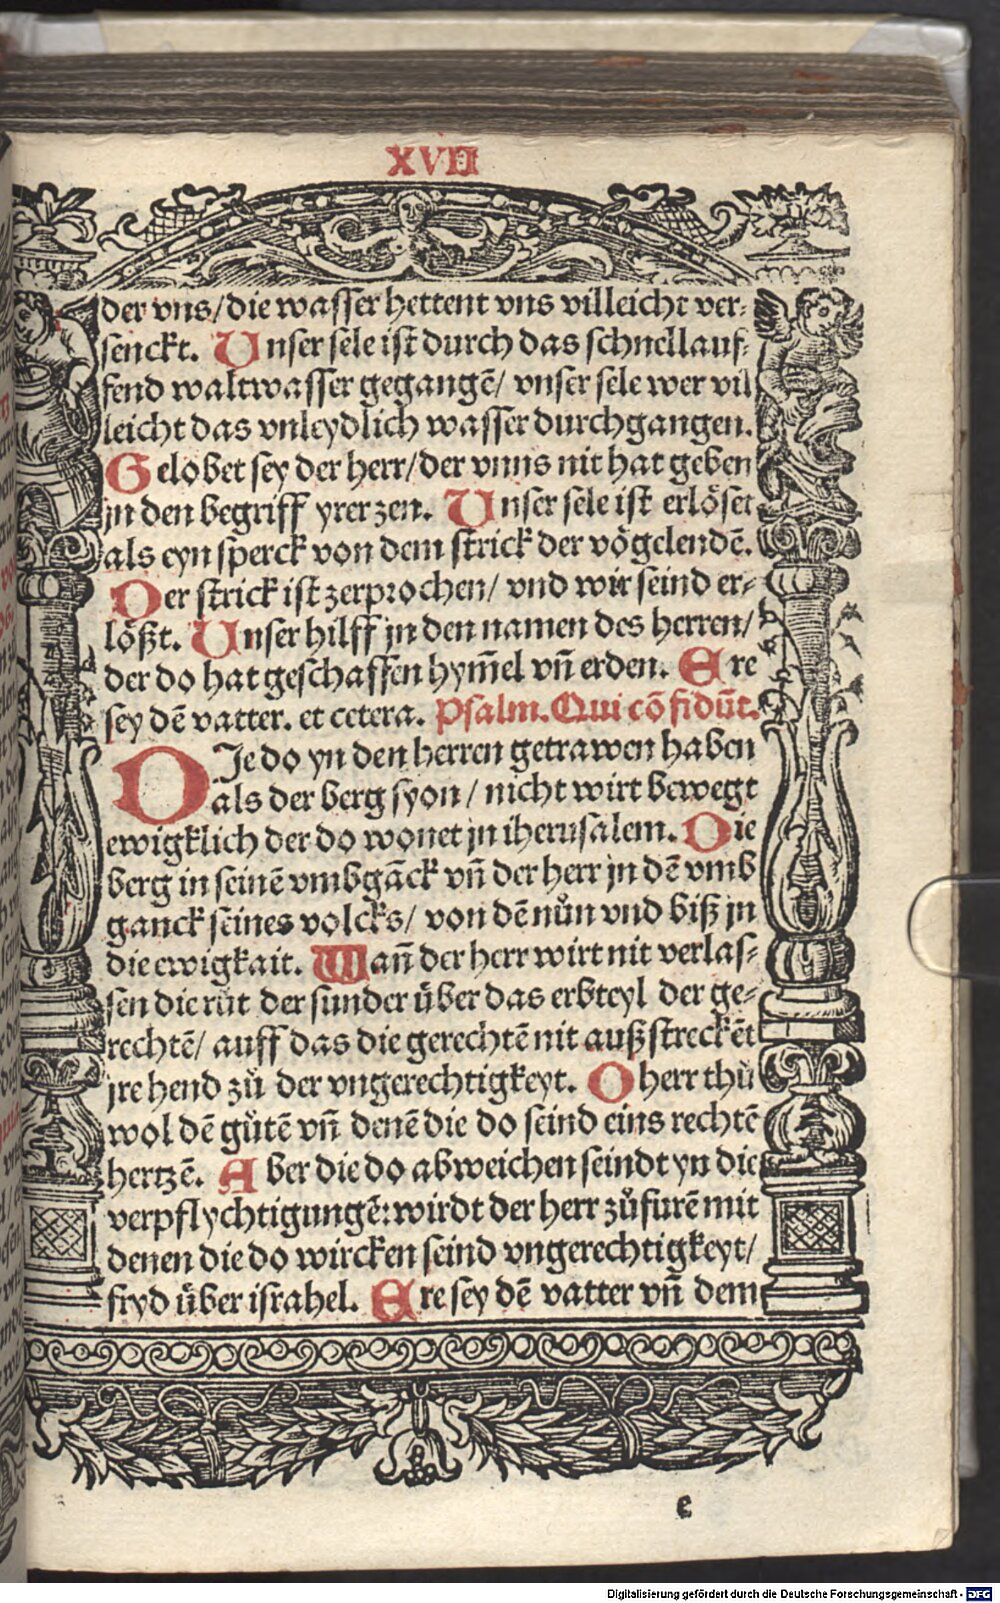 XVII
der vns/die wasser hettent vns villeicht ver⸗
senckt. Unser sele ist durch das schnellauf⸗
fend waltwasser gegangē/ vnser sele wer vil
leicht das vnleydlich wasser durchgangen.
Gelobet sey der herr/der vnns nit hat geben
jn den begriff yrer zen. Unser sele ist erlöset
als eyn sperck von dem strick der vögelendē.
Der strick ist zerprochen/ vnd wir seind er⸗
lößt. Unser hilff jn den namen des herren/
der do hat geschaffen hym̄el vn̄ erden. Ere
sey dē vatter. et cetera. Psalm. Qui cōfidūt.
DIe do yn den herren getrawen haben
als der berg syon/ nicht wirt bewegt
ewigklich der do wonet jn iherusalem. Die
berg in seinē vmbgāck vn̄ der herr jn dē vmb
ganck seines volcks/ von dē nůn vnd biß jn
die ewigkait. Wan̄ der herr wirt nit verlas⸗
sen die růt der sunder über das erbteyl der ge⸗
rechtē/ auff das die gerechtē nit außstreckēt
jre hend zů der vngerechtigkeyt. O herr thů
wol dē gůtē vn̄ denē die do seind eins rechtē
hertzē. Aber die do abweichen seindt yn die
verpflychtigungē: wirdt der herr zůfurē mit
denen die do wircken seind vngerechtigkeyt/
fryd über israhel. Ere sey dē vatter vn̄ dem
e
Digitalisierung gefördert durch die Deutsche Forschungsgemeinschaft - DFG